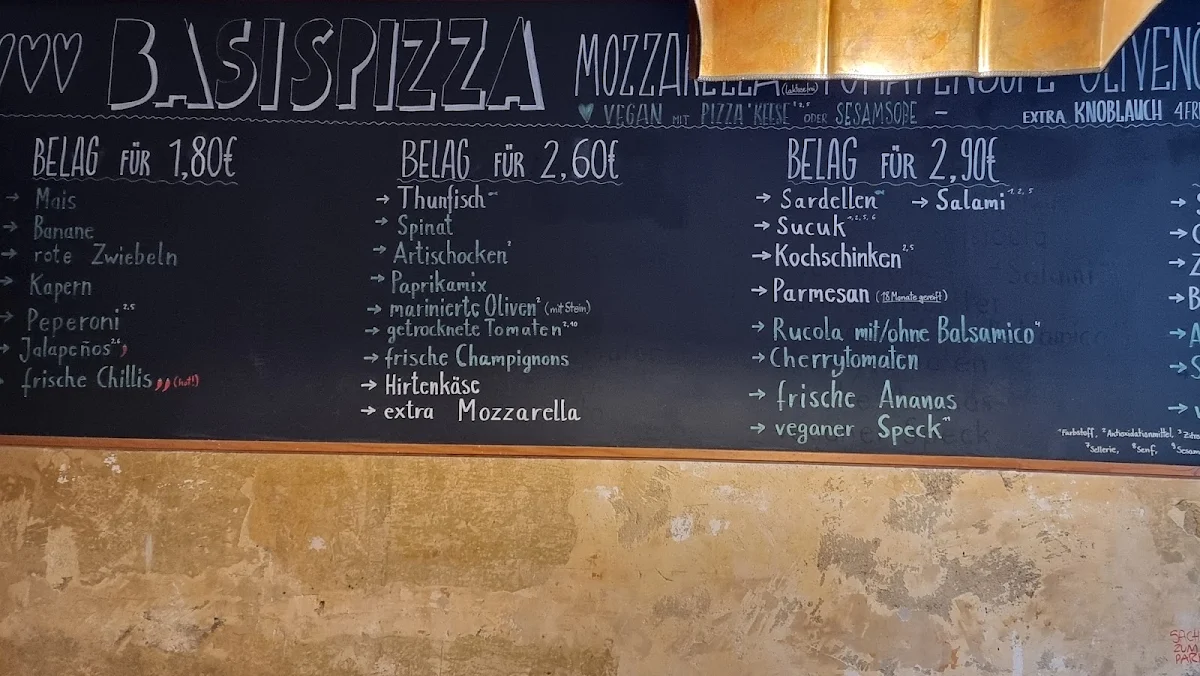 BASISPIZZA
MOZZARELLA (laktosefrei) TOMATENSOßE OLIVENÖ
VEGAN MIT PIZZA "KEESE"²,⁵ ODER SESAMSOßE –
EXTRA KNOBLAUCH 4FR
BELAG FÜR 1,80€
→ Mais
→ Banane
→ rote Zwiebeln
→ Kapern
→ Peperoni²,⁵
→ Jalapeños²,⁶
→ frische Chillis (hot!)
BELAG FÜR 2,60€
→ Thunfisch
→ Spinat
→ Artischocken²
→ Paprikamix
→ marinierte Oliven² (mit Stein)
→ getrocknete Tomaten²,¹⁰
→ frische Champignons
→ Hirtenkäse
→ extra Mozzarella
BELAG FÜR 2,90€
→ Sardellen → Salami¹,²,⁵
→ Sucuk¹,²,⁵,⁶
→ Kochschinken²,⁵
→ Parmesan (18 Monate gereift)
→ Rucola mit/ohne Balsamico⁴
→ Cherrytomaten
→ frische Ananas
→ veganer Speck¹¹
¹Farbstoff, ²Antioxidationsmittel, ³Zitro
⁷Sellerie, ⁸Senf, ⁹Sesam
SACH
ZUM
PAR